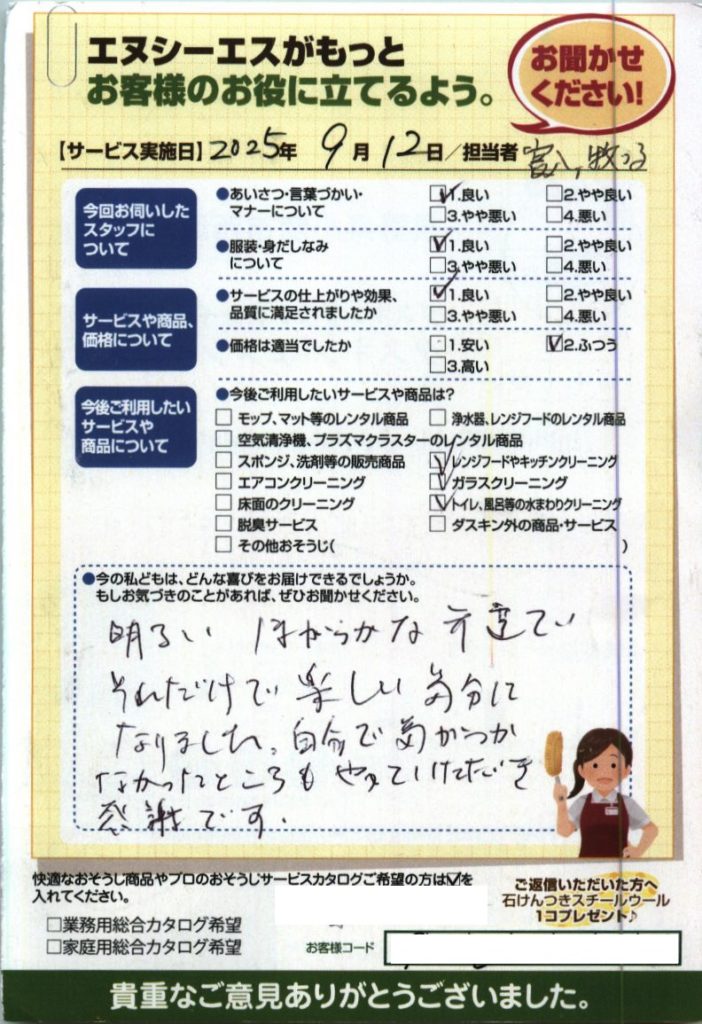 エヌシーエスがもっと
お客様のお役に立てるよう。
お聞かせ
ください!
【サービス実施日】2025年 9月12日/担当者
今回お伺いした
スタッフに
ついて
●あいさつ・言葉づかい・
マナーについて
☑1.良い □2.やや良い
□3.やや悪い □4.悪い
●服装・身だしなみ
について
☑1.良い □2.やや良い
□3.やや悪い □4.悪い
サービスや商品、
価格について
●サービスの仕上がりや効果、
品質に満足されましたか
☑1.良い □2.やや良い
□3.やや悪い □4.悪い
●価格は適当でしたか
□1.安い ☑2.ふつう
□3.高い
今後ご利用したい
サービスや
商品について
●今後ご利用したいサービスや商品は?
□ モップ、マット等のレンタル商品 □ 浄水器、レンジフードのレンタル商品
□ 空気清浄機、プラズマクラスターのレンタル商品
□ スポンジ、洗剤等の販売商品 ☑レンジフードやキッチンクリーニング
□ エアコンクリーニング ☑ガラスクリーニング
□ 床面のクリーニング ☑トイレ、風呂等の水まわりクリーニング
□ 脱臭サービス □ ダスキン外の商品・サービス
□ その他おそうじ( )
●今の私どもは、どんな喜びをお届けできるでしょうか。
もしお気づきのことがあれば、ぜひお聞かせください。
明るい ほがらかな 方達で
それだけで 楽しい 気分に
なりました。自分で 気がつか
なかったところも やっていただき
感謝です.
快適なおそうじ商品やプロのおそうじサービスカタログご希望の方は☑を
入れてください。
□業務用総合カタログ希望
□家庭用総合カタログ希望
お客様コード
ご返信いただいた方へ
石けんつきスチールウール
1コプレゼント♪
貴重なご意見ありがとうございました。